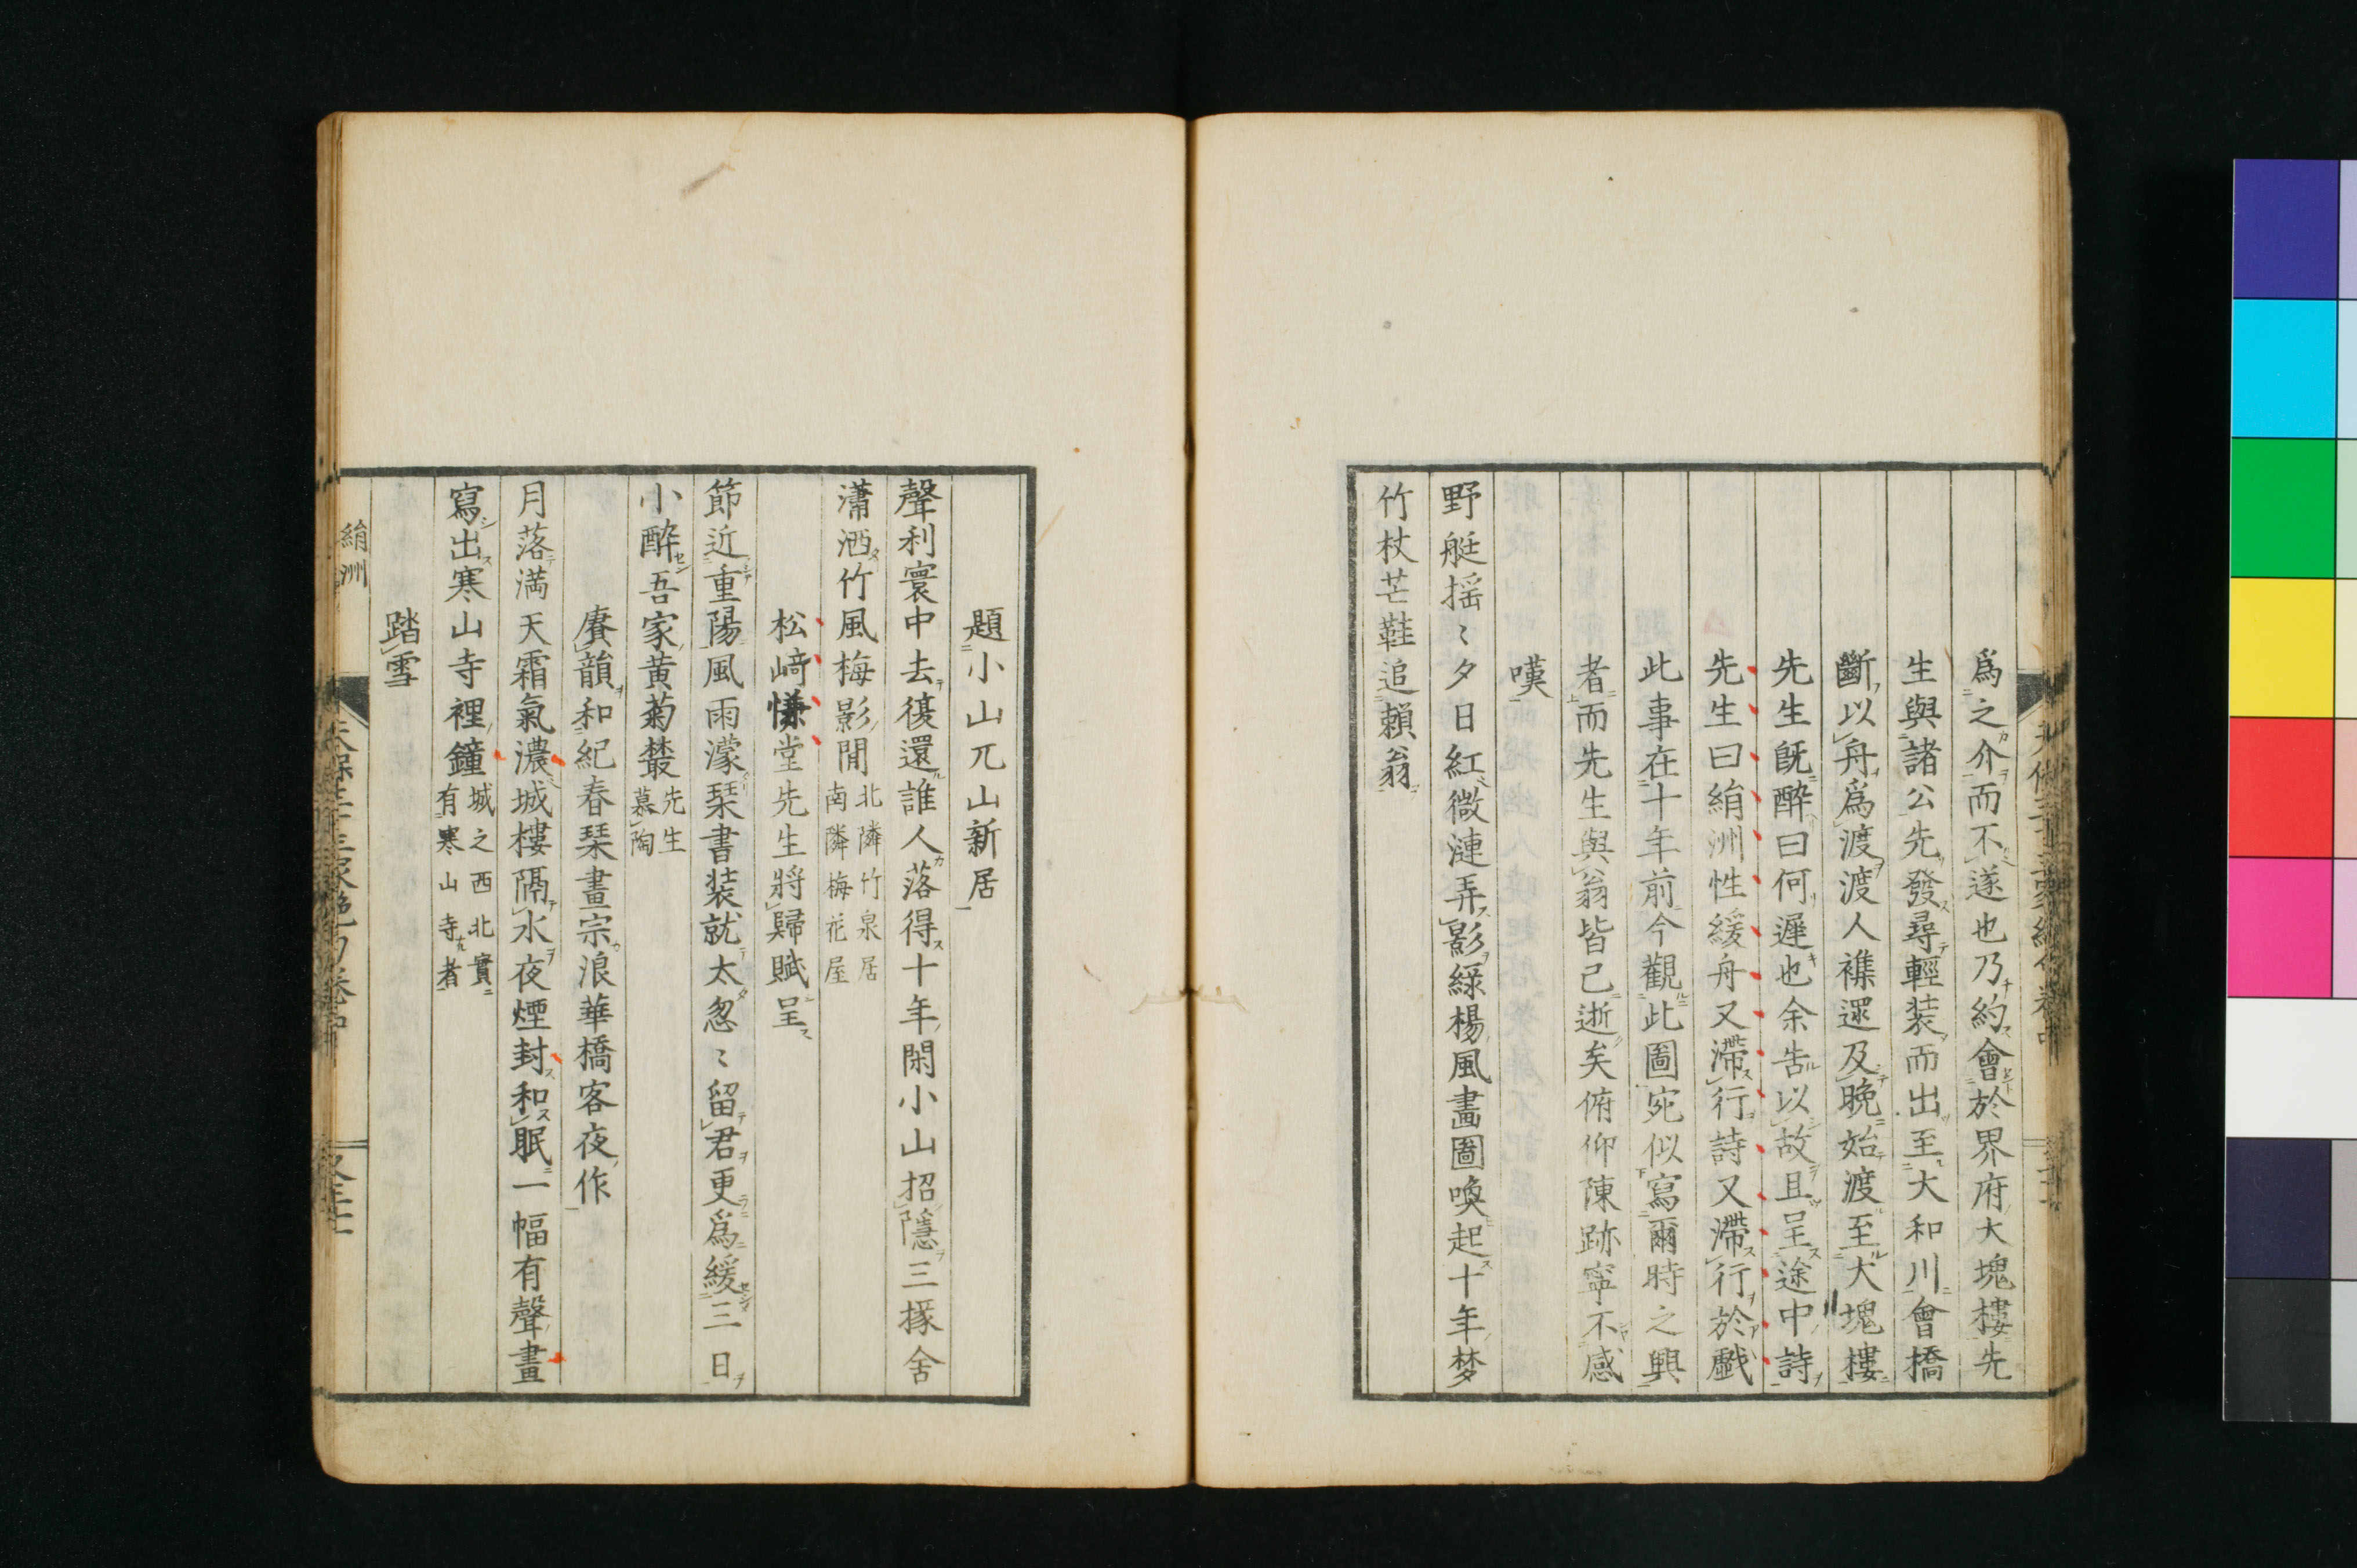 爲之介而不遂也乃約會於界府大塊樓先
生與諸公先發尋輕装而出至大和川會橋
斷以舟爲渡渡人襍遝及晩始渡至大塊樓
先生既醉曰何遲也余告以故且呈途中詩
先生曰絹洲性緩舟又滯行詩又滯行於戲
此事在十年前今觀此圖宛似寫爾時之興
者而先生與翁皆已逝矣俯仰陳跡寧不感
嘆
野艇揺〻夕日紅微漣弄影緑楊風畵圖喚起十年梦
竹杖芒鞋追頼翁
題小山兀山新居
聲利寰中去復還誰人落得十年閑小山招隱三椽舍
瀟洒竹風梅影間北隣竹泉居南隣梅花屋
松﨑慊堂先生將歸賦呈
節近重陽風雨濛琹書装就太怱〻留君更爲緩三日
小醉吾家黄菊叢先生慕陶
賡韻和紀春琹畫宗浪華橋客夜作
月落満天霜氣濃城樓隔水夜煙封和眠一幅有聲畫
寫出寒山寺裡鐘城之西北實有寒山寺者
踏雪
絹洲